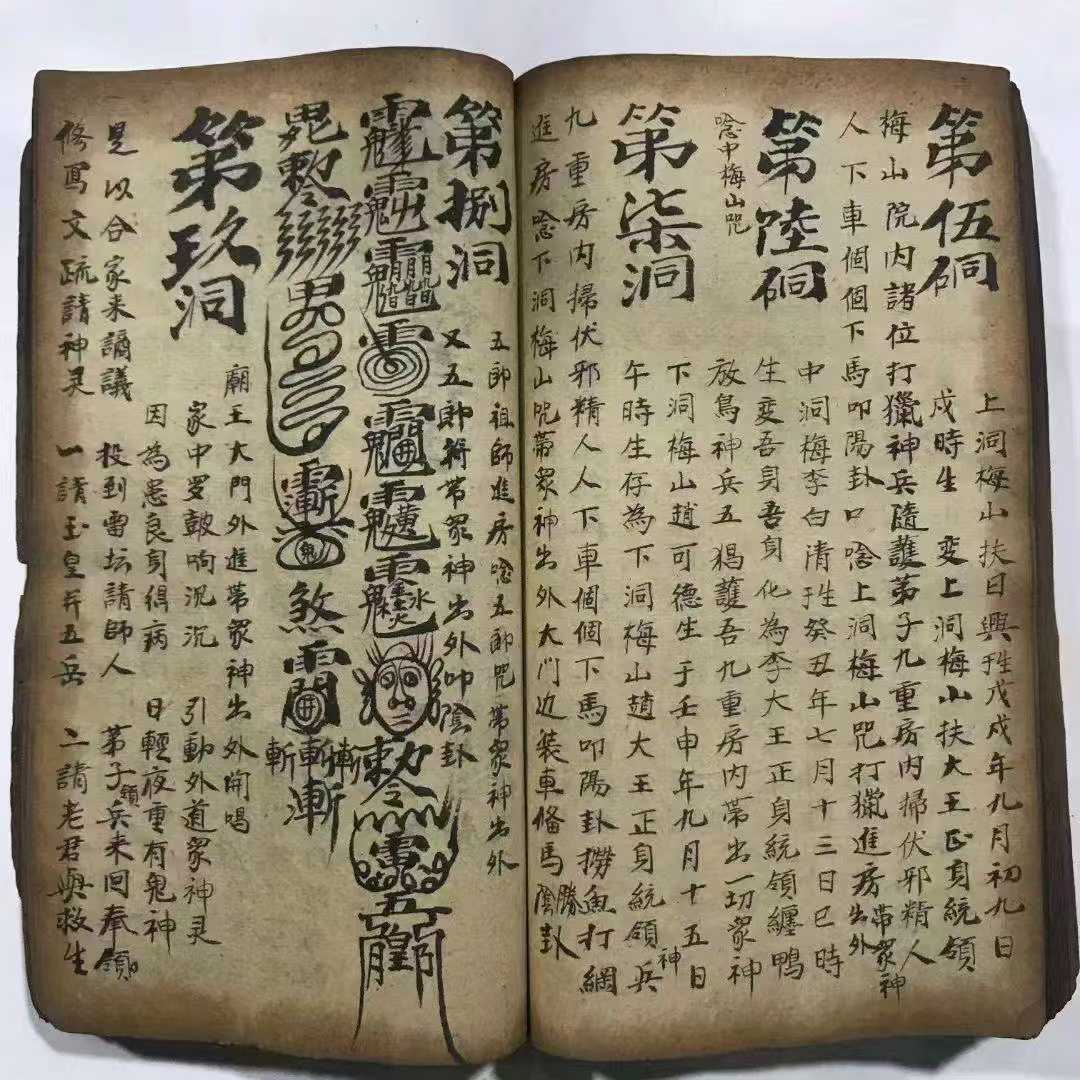 第伍硐
上洞梅山扶曰興 㹴戊戌年九月初九日
戌時生 变上洞梅山扶大王正身統領
梅山院内諸位打獵神兵隨護弟子九重房内掃伏邪精人
人下車個個下馬叩陽卦口唸上洞梅山咒打獵進房帶眾神出外
第陸硐
中洞梅李白清 癸丑年七月十三日巳時
生变吾身吾身化為李大王正身統領纏鴨
放鳥神兵五猖護吾九重房内帶出一切眾神
唸中梅山咒
第柒洞
下洞梅山趙可德生于壬申年九月十五日
午時生存為下洞梅山趙大王正身統領神兵
九重房内掃伏邪精人人下車個個下馬叩陽卦撈魚打網
進房唸下洞梅山咒帶眾神出外大门边装車俻馬勝陰卦
第捌洞
五郎祖師進房唸五郎咒帶眾神出外
又五郎符帶眾神出外叩陰卦
敕令
煞
斬斬斬
第玖洞
廟王大門外進帶眾神出外開唱
家中罗皷响沉沉 引動外道眾神灵
因為患良身得病 日輕夜重有鬼神
是以合家来謪議 投到雷坛請師人 弟子領兵来回奉領
修寫文疏請神灵 一請玉皇并五岳 二請老君與救生